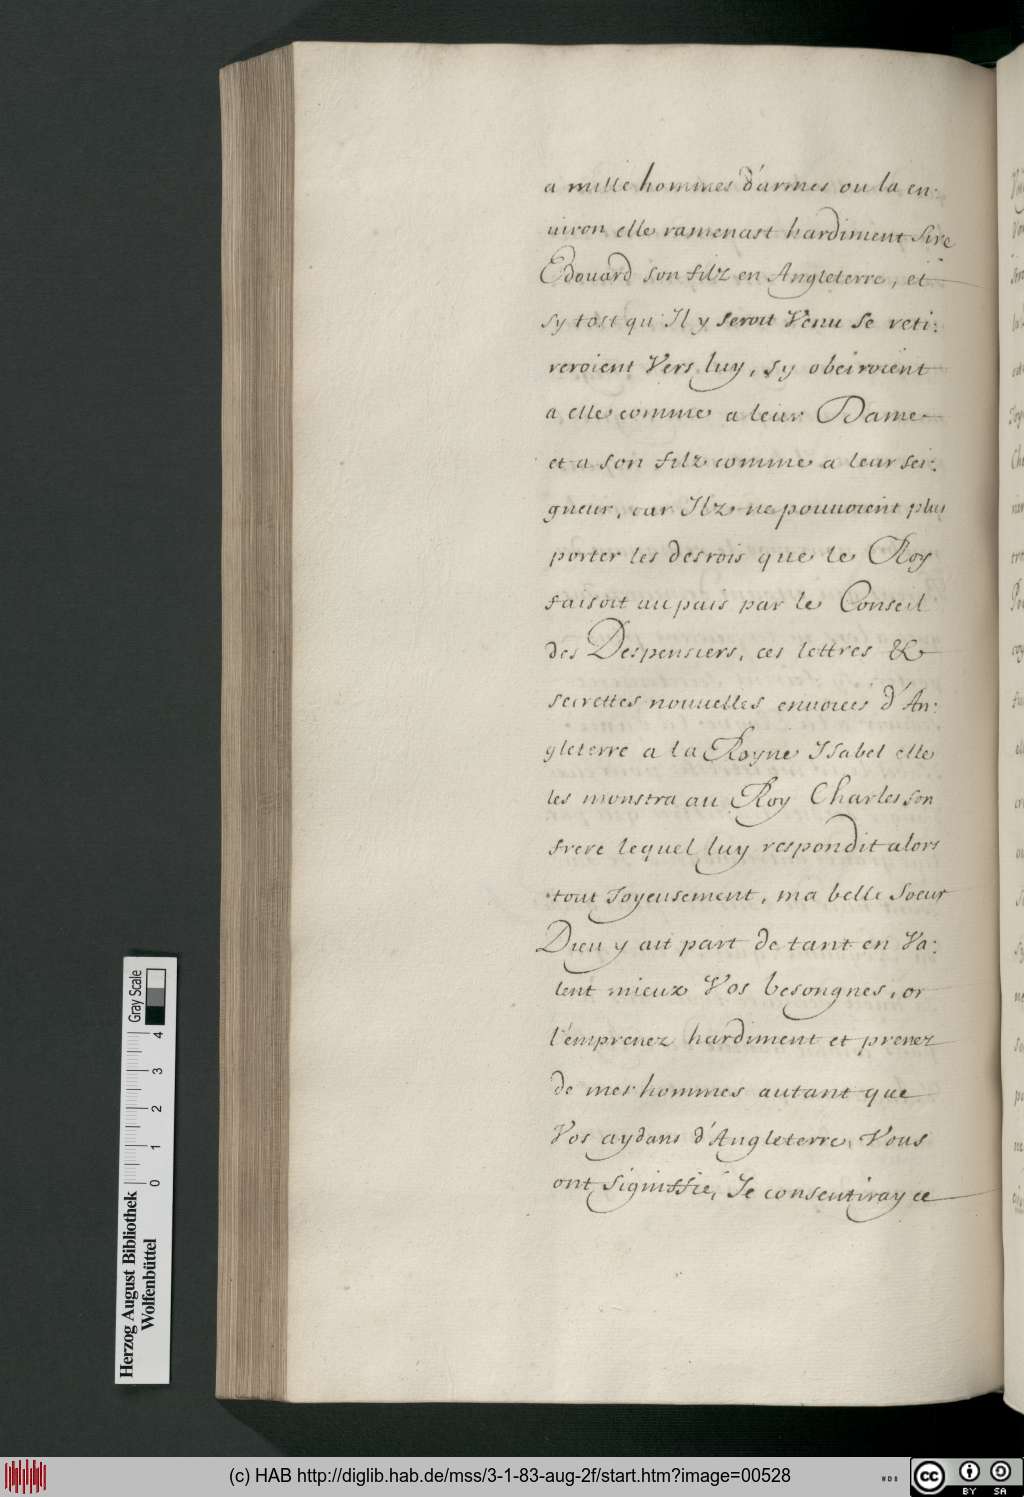 a mille hommes d'armes ou la en:
uiron elle ramenast hardiment Sire
Edouard son filz en Angleterre, et
sy tost qu'Il y seroit Venu se reti:
reroient Vers luy, sy obeiroient
a elle comme a leur Dame
et a son filz comme a leur sei:
gneur, car Ilz ne pouuoient plus
porter les desrois que le Roy
faisoit au pais par le Conseil
des Despensiers, ces lettres &
secrettes nouuelles enuoieés d'An:
gleterre a la Royne Isabel elle
les monstra au Roy Charles son
frere lequel luy respondit alors
tout Joyeusement, ma belle Soeur
Dieu y ait part de tant en Va:
lent mieux Vos besongnes, or
l'emprenez hardiment et prenez
de mes hommes autant que
Vos aydans d'Angleterre, Vous
ont signiffié, Je consentiray ce
Gray Scale
4
3
2
1
0
Herzog August Bibliothek
Wolfenbüttel
(c) HAB http://diglib.hab.de/mss/3-1-83-aug-2f/start.htm?image=00528
WDB
cc
BY SA